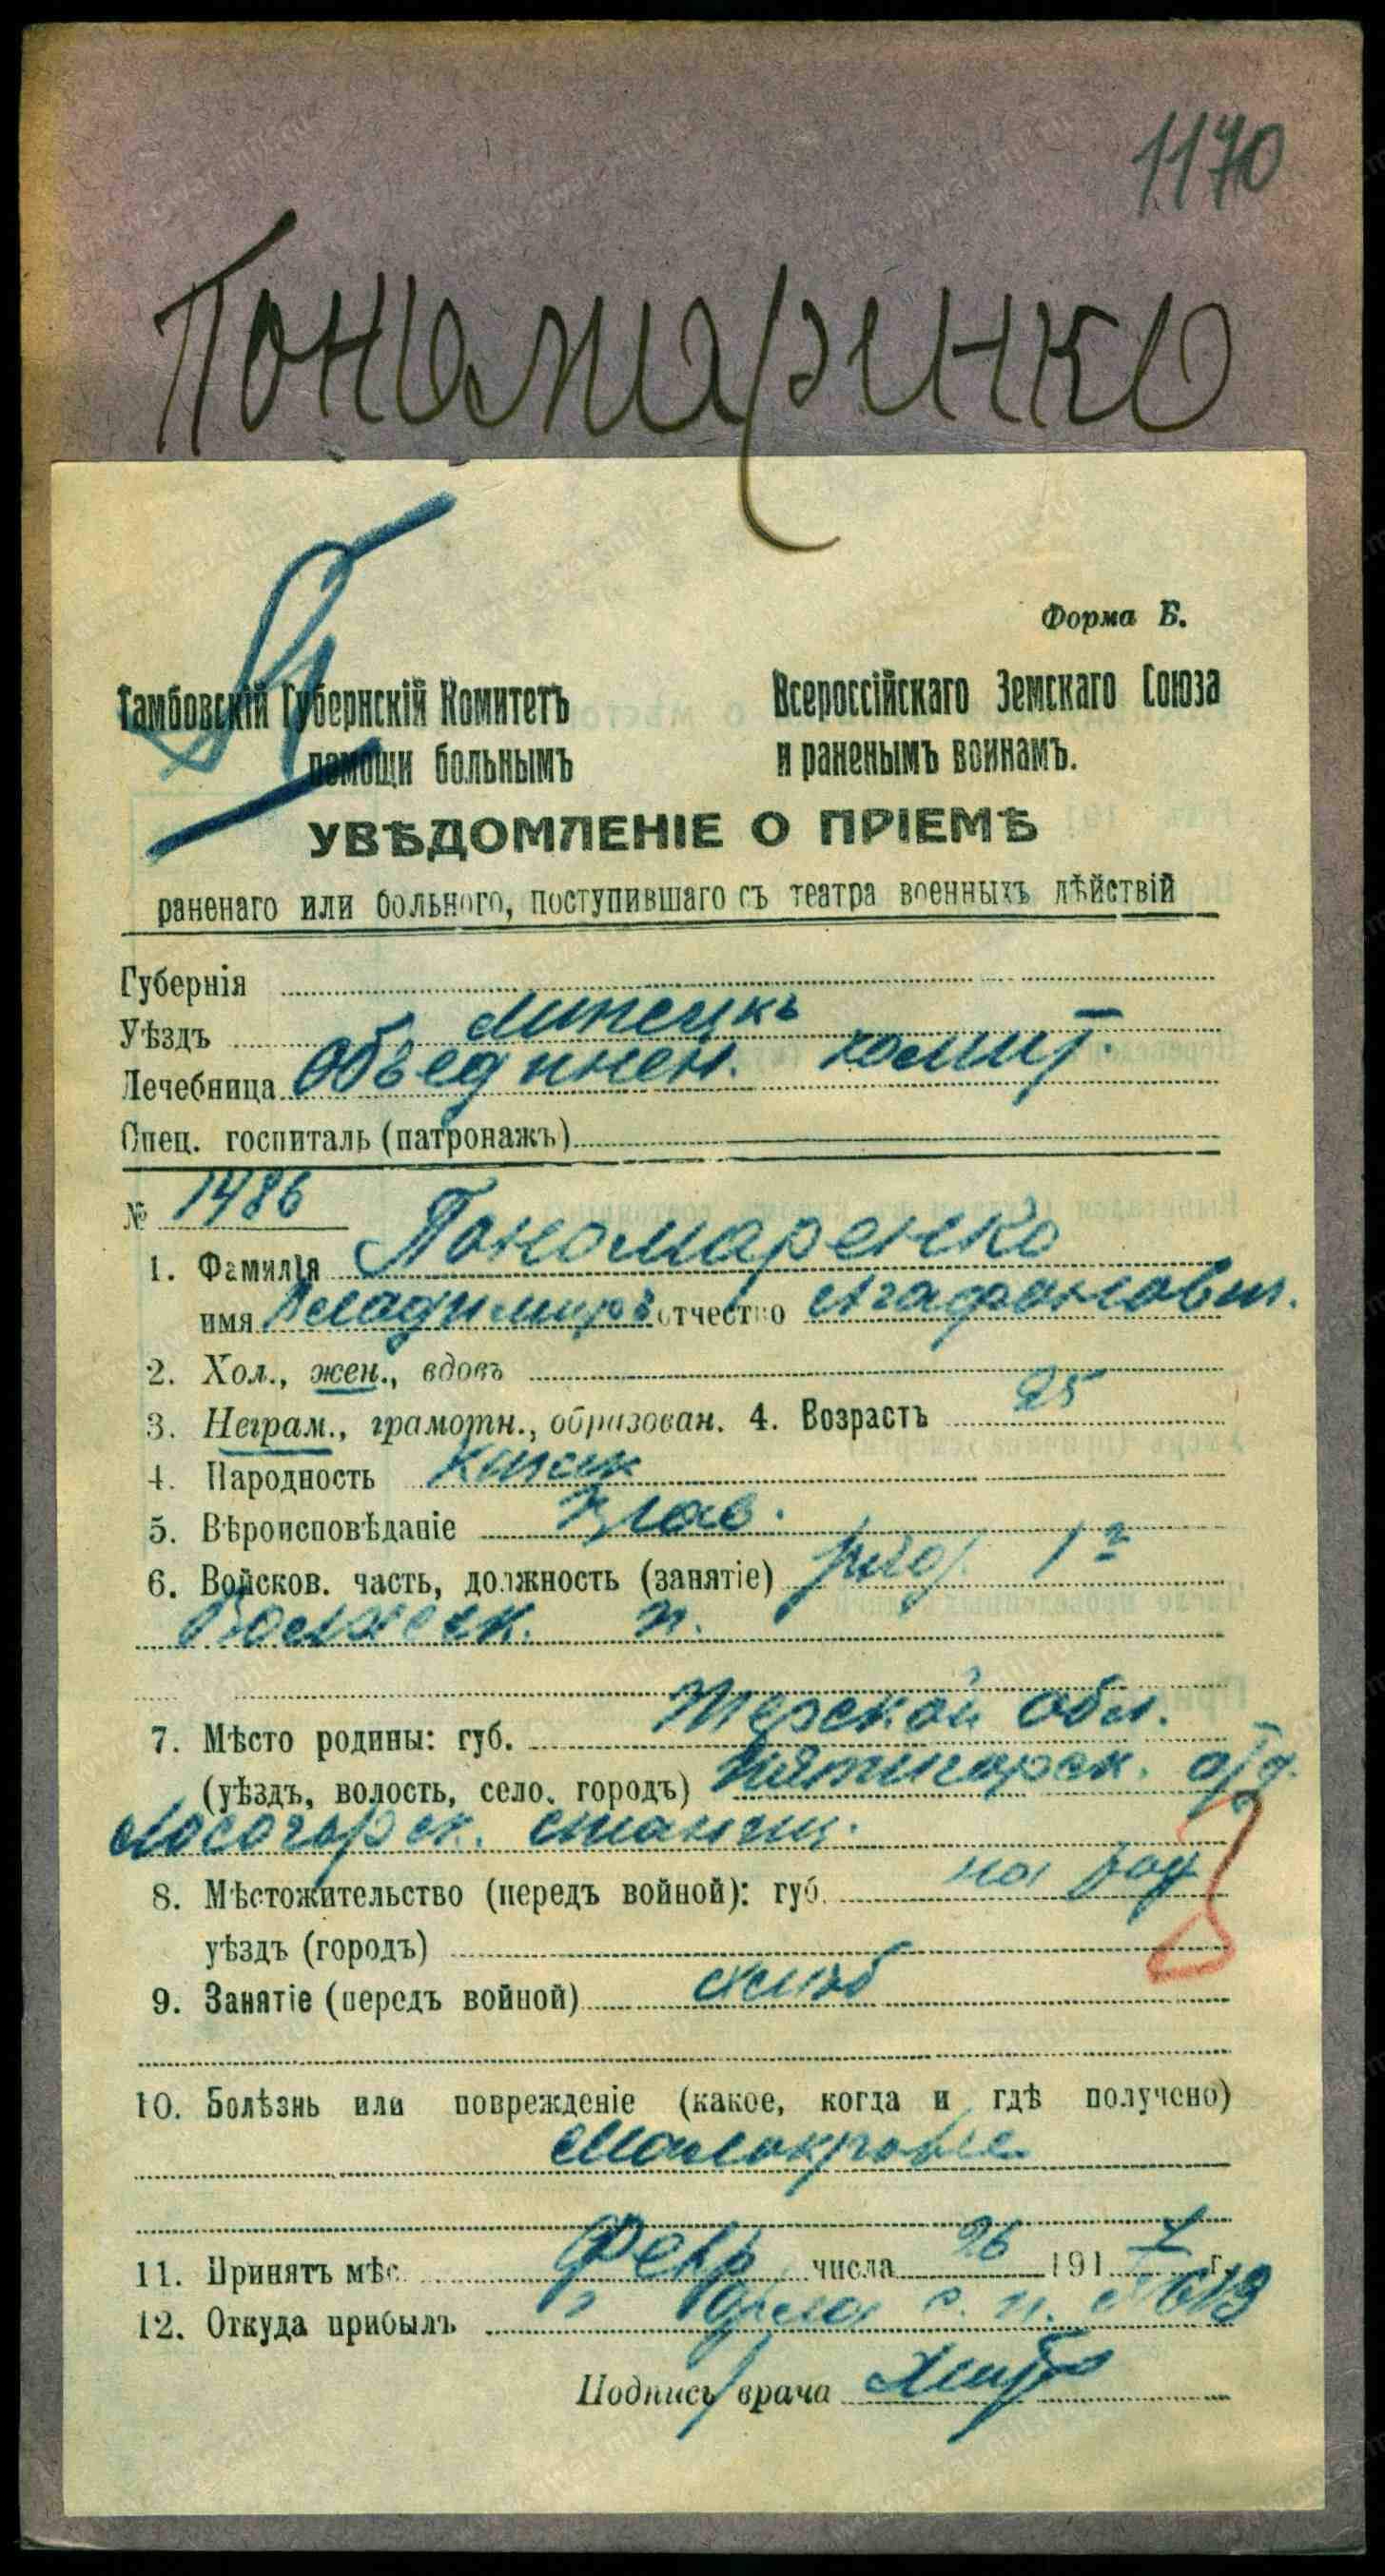 1170
Пономаренко
Форма Б.
Тамбовскій Губернскій Комитетъ Всероссійскаго Земскаго Союза
помощи больнымъ и раненымъ воинамъ.
УВѢДОМЛЕНІЕ О ПРІЕМѢ
раненаго или больного, поступившаго съ театра военныхъ дѣйствій
Губернія
Уѣздъ Липецкъ
Лечебница Объединен. комит.
Спец. госпиталь (патронажъ)
№ 1486
1. Фамилія Пономаренко
имя Владимиръ отчество Агафонович.
2. Хол., жен., вдовъ
3. Неграм., грамотн., образован. 4. Возрастъ 25
4. Народность казак
5. Вѣроисповѣданіе Прав.
6. Войсков. часть, должность (занятіе) ряд. 1й
Волжск. п.
7. Мѣсто родины: губ. Терской обл.
(уѣздъ, волость, село, городъ) Пятигорск. отд.
Лысогорск. станиц.
8. Мѣстожительство (передъ войной): губ. на род
уѣздъ (городъ)
9. Занятіе (передъ войной)
10. Болѣзнь или поврежденіе (какое, когда и гдѣ получено)
Малокровіе
11. Принятъ мѣс. Февр числа 26 1917 г.
12. Откуда прибылъ Орла с. п. № 613
Подпись врача